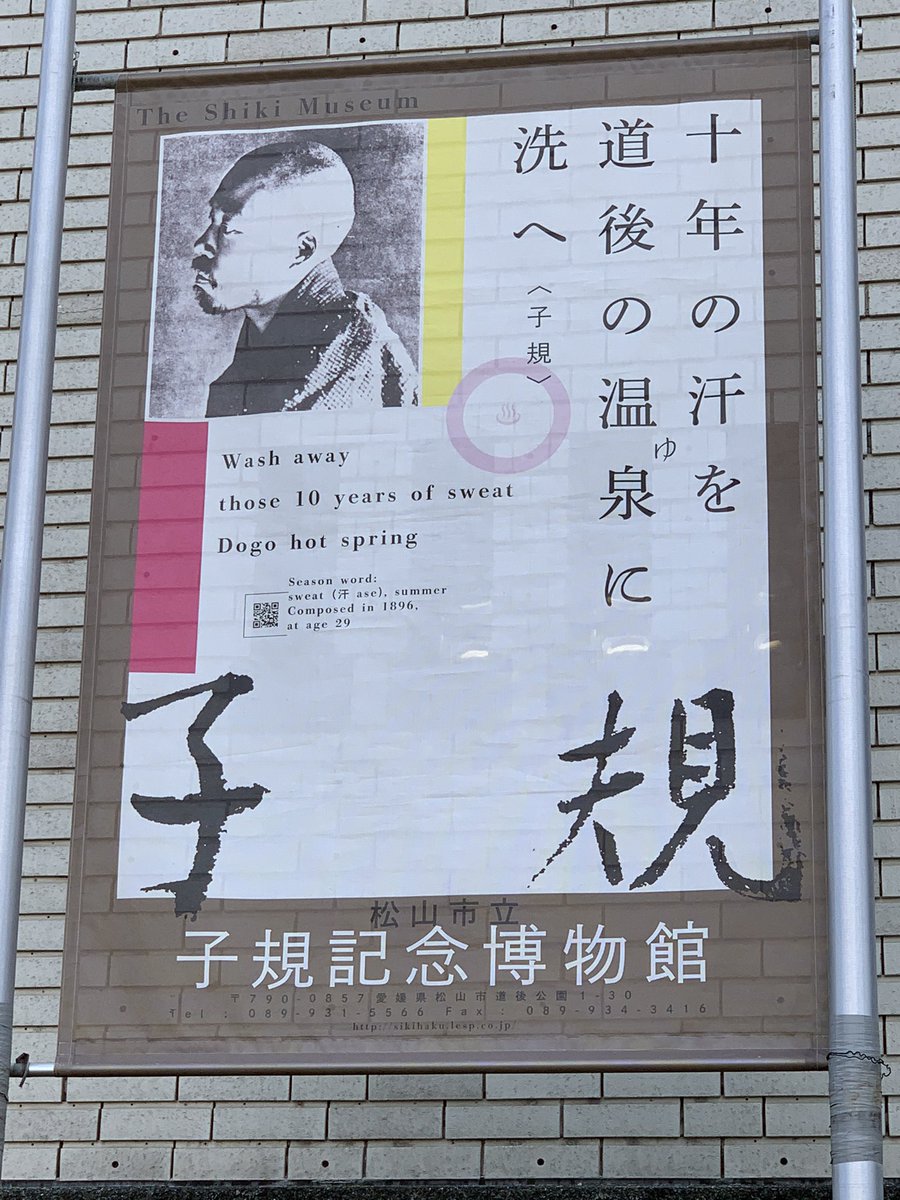 The Shiki Museum
十年の汗を
道後の温泉に
ゆ
洗へ
〈子規〉
Wash away
those 10 years of sweat
Dogo hot spring
Season word:
sweat (汗 ase), summer
Composed in 1896,
at age 29
子規
松山市立
子規記念博物館
〒790-0857 愛媛県松山市道後公園1-30
Tel : 089-931-5566 Fax : 089-934-3416
http://sikihaku.lesp.co.jp/